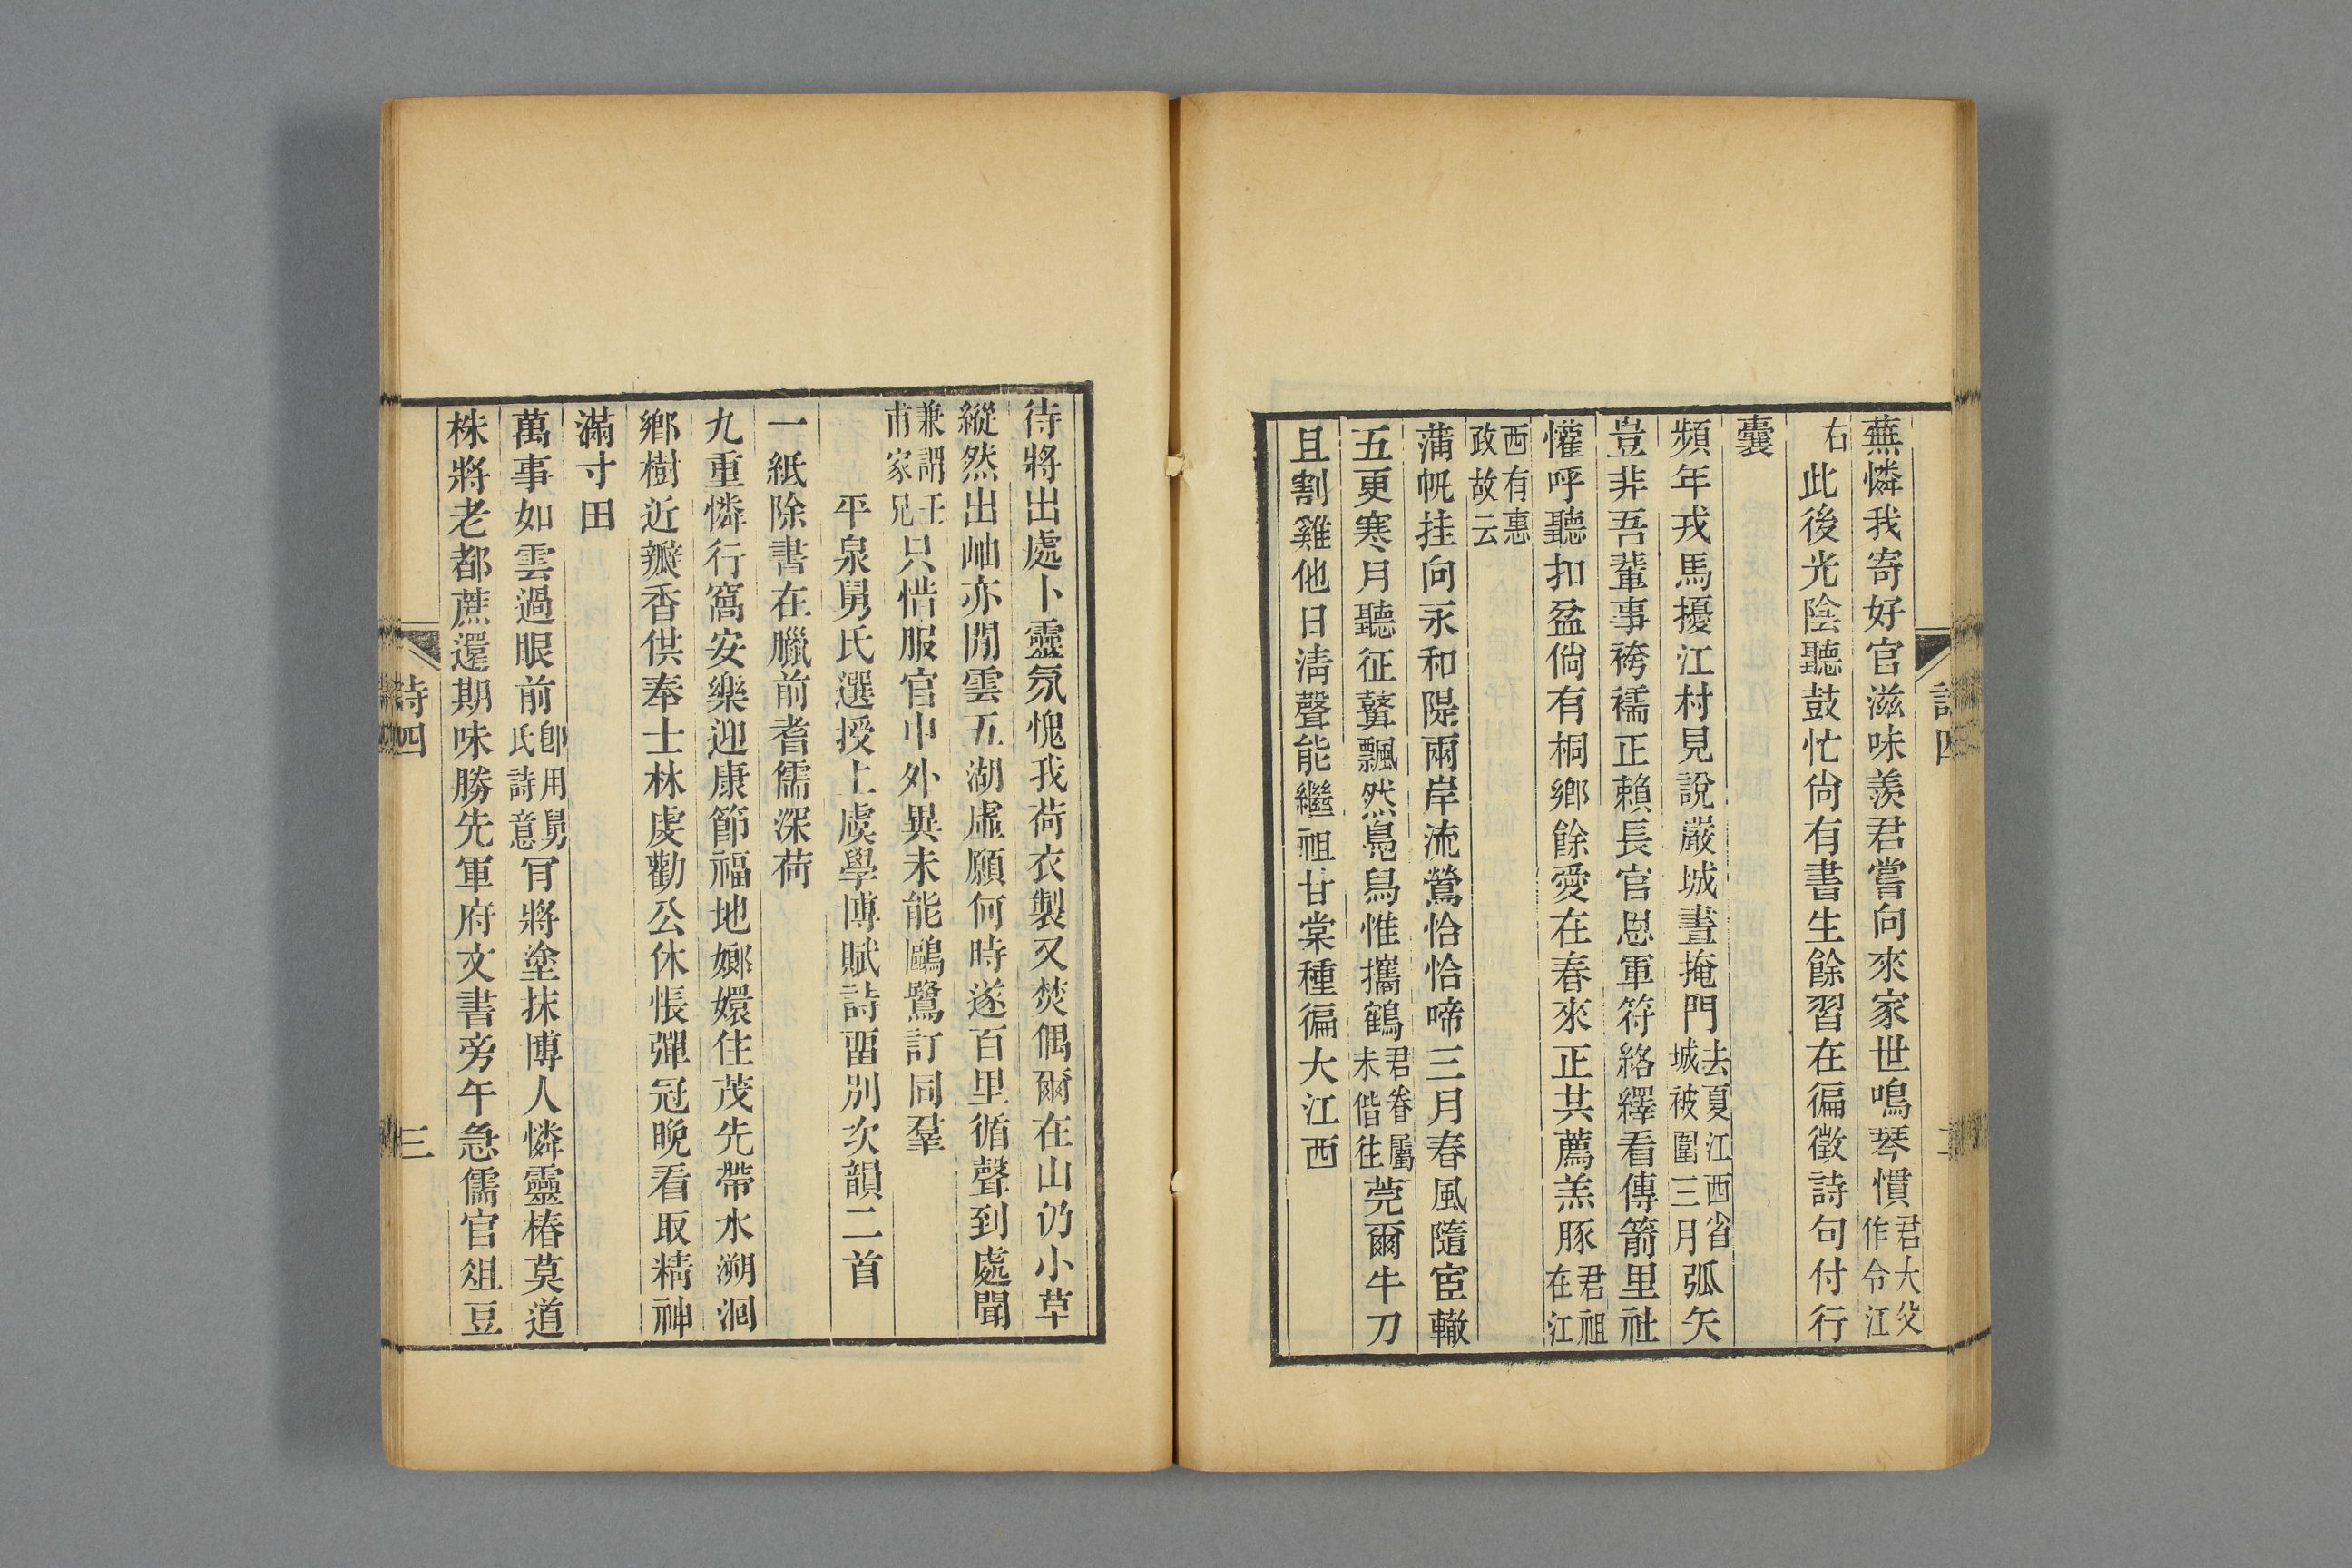 蕪憐我寄好官滋味羨君嘗向來家世鳴琴慣君大父作令江
右此後光陰聽鼓忙尙有書生餘習在徧徵詩句付行
囊
頻年戎馬擾江村見說嚴城晝掩門去夏江西省城被圍三月弧矢
豈非吾輩事袴襦正賴長官恩軍符絡繹看傳箭里社
懽呼聽扣盆倘有桐鄉餘愛在春來正共薦羔豚君祖在江
西有惠政故云
蒲帆挂向永和隄兩岸流鶯恰恰啼三月春風隨宦轍
五更寒月聽征鼙飄然鳧舄惟攜鶴君眷屬未偕往莞爾牛刀
且割雞他日淸聲能繼祖甘棠種徧大江西
待將出處卜靈氛愧我荷衣製又焚偶爾在山仍小草
縱然出岫亦閒雲五湖虛願何時遂百里循聲到處聞
兼謂壬甫家兄只惜服官中外異未能鷗鷺訂同羣
平泉舅氏選授上虞學博賦詩畱別次韻二首
一紙除書在臘前耆儒深荷
九重憐行窩安樂迎康節福地嫏嬛住茂先帶水溯洄
鄉樹近瓣香供奉士林虔勸公休悵彈冠晚看取精神
滿寸田
萬事如雲過眼前卽用舅氏詩意肎將塗抹博人憐靈椿莫道
株將老都蔗還期味勝先軍府文書旁午急儒官俎豆
詩四
三